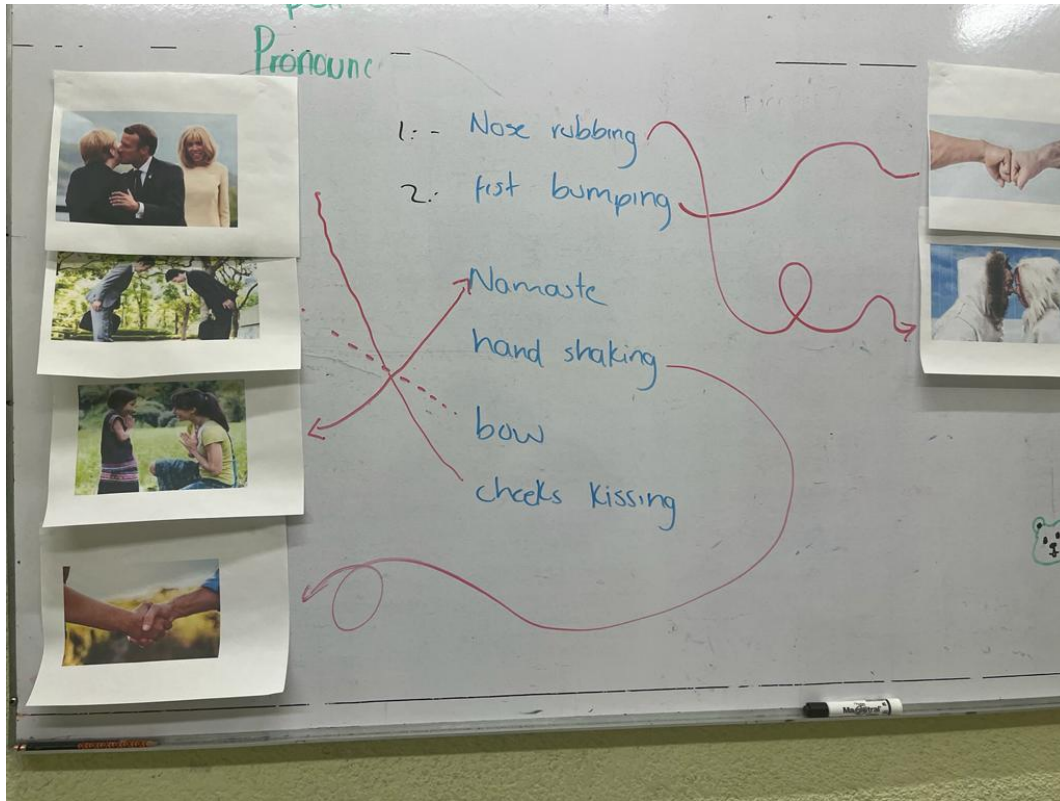 Pronounc
1:- Nose rubbing
2: fist bumping
Namaste
hand shaking
bow
cheeks kissing
Magistral